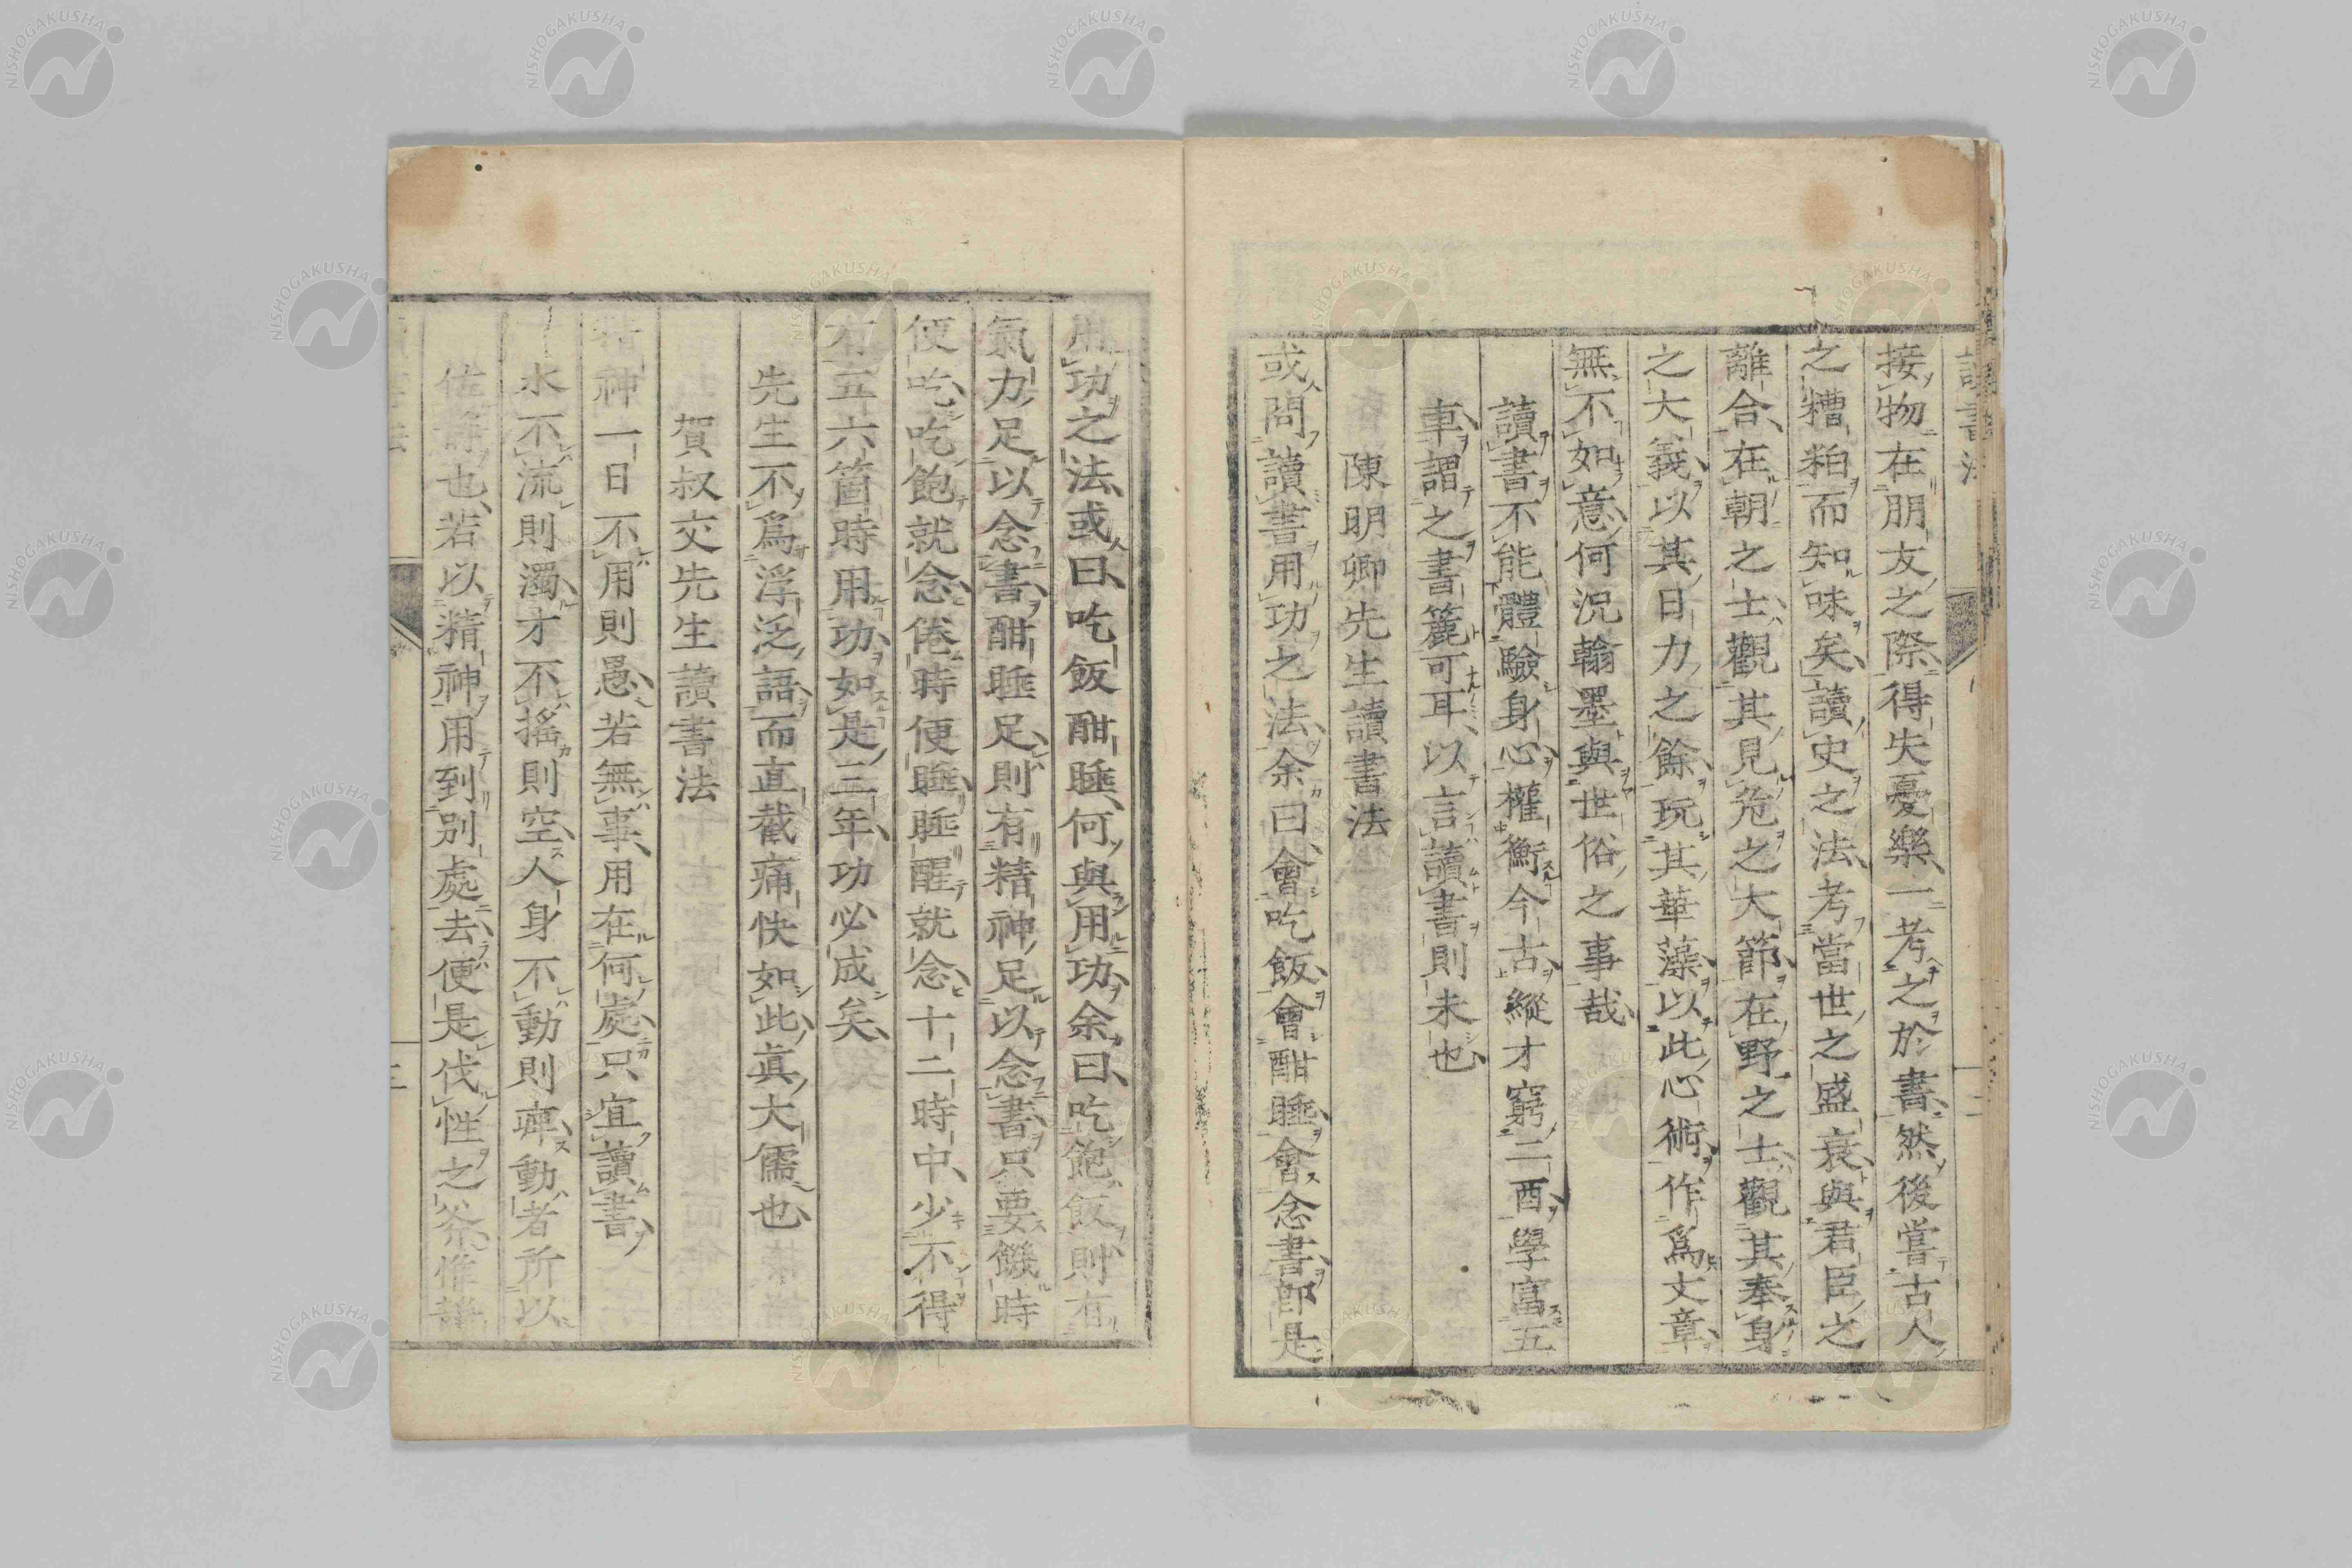 接物在朋友之際得失憂樂一考之於書然後嘗古人
之糟粕而知味矣讀史之法考當世之盛衰與君臣之
離合在朝之士觀其見危之大節在野之士觀其奉身
之大義以其日力之餘玩其華藻以此心術作爲文章
無不如意何況翰墨與世俗之事哉
讀書不能體驗身心權衡今古縱才窮二酉學富五
車謂之書簏可耳以言讀書則未也
陳明卿先生讀書法
或問讀書用功之法余曰會吃飯會酣睡會念書卽是
用功之法或曰吃飯酣睡何與用功余曰吃飽飯則有
氣力足以念書酣睡足則有精神足以念書只要饑時
便吃吃飽就念倦時便睡睡醒就念十二時中少不得
有五六箇時用功如是三年功必成矣
先生不爲浮泛語而直截痛快如此眞大儒也
賀叔交先生讀書法
精神一日不用則愚若無事用在何處只宜讀書
水不流則濁才不搖則空人身不動則痺動者所以
也若以精神用到別處去便是伐性之斧惟讀
NISHOGAKUSHA